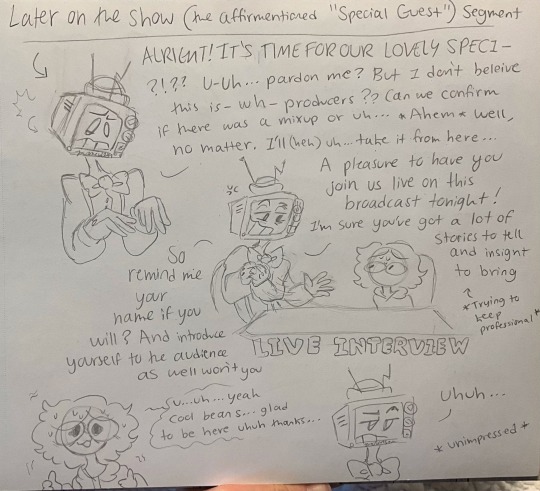 Later on the show (the affirmentioned "Special Guest") Segment
ALRIGHT! IT'S TIME FOR OUR LOVELY SPECI-
?!?? U-Uh... pardon me? But I don't beleive
this is- wh- producers?? Can we confirm
if there was a mixup or uh... *Ahem* well,
no matter. I'll (heh) uh... take it from here...
A pleasure to have you
join us live on this
broadcast tonight!
I'm sure you've got a lot of
stories to tell
and insight
to bring
*Trying to
keep
professional*
So
remind me
your
name if you
will? And introduce
yourself to the audience
as well won't you
LIVE INTERVIEW
u...uh... yeah
cool beans... glad
to be here uhuh thanks...
Uhuh...
*unimpressed*